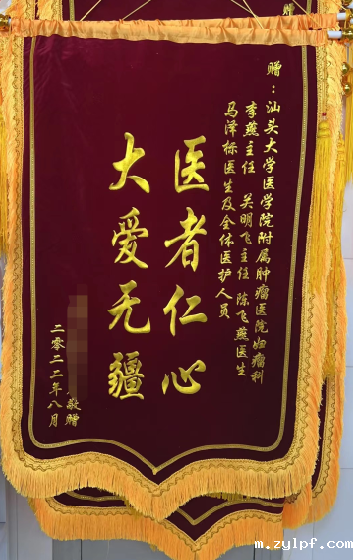 赠：汕头大学医学院附属肿瘤医院妇瘤科
李燕主任 关明飞主任 陈飞燕医生
马泽标医生及全体医护人员
医者仁心
大爱无疆
敬赠
二零二二年八月
m.zylpf.com